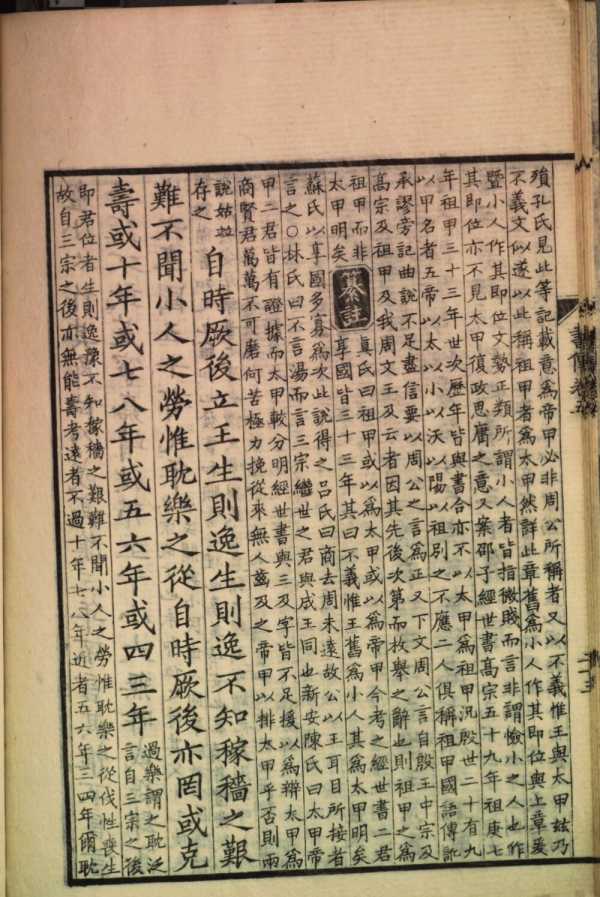 殞孔氏見此等記載意爲帝甲必非周公所稱者又以不義惟王與太甲茲乃
不義文似遂以此稱祖甲者爲太甲然詳此章舊爲小人作其即位與上章爰
曁小人作其即位文勢正類所謂小人者皆指微賤而言非謂憸小之人也作
其即位亦不見太甲復政思庸之意又案邵子經世書高宗五十九年祖庚七
年祖甲三十三年世次歷年皆與書合亦不以太甲爲祖甲況殷世二十有九
以甲名者五帝以太以小以沃以陽以祖別之不應二人俱稱祖甲國語傳訛
承謬旁記曲說不足盡信要以周公之言爲正又下文周公言自殷王中宗及
高宗及祖甲及我周文王及云者因其先後次第而枚舉之辭也則祖甲之爲
祖甲而非
太甲明矣
纂註
眞氏曰祖甲或以爲太甲或以爲帝甲今考之經世書二君
享國皆三十三年其曰不義惟王舊爲小人其爲太甲明矣
蘇氏以享國多寡爲次此說得之呂氏曰商去周未遠故公以王耳目所接者
言之〇林氏曰不言湯而言三宗繼世之君與成王同也新安陳氏曰太甲帝
甲二君皆有證據而太甲較分明經世書與三及字皆不足援以爲辯太甲爲
商賢君萬萬不可磨何苦極力挽從來無人齒及之帝甲以排太甲乎否則兩
說姑並
存之
自時厥後立王生則逸生則逸不知稼穡之艱
難不聞小人之勞惟耽樂之從自時厥後亦罔或克
壽或十年或七八年或五六年或四三年
過樂謂之耽泛
言自三宗之後
即君位者生則逸豫不知稼穡之艱難不聞小人之勞惟耽樂之從伐性喪生
故自三宗之後亦無能壽考遠者不過十年七八年近者五六年三四年爾耽